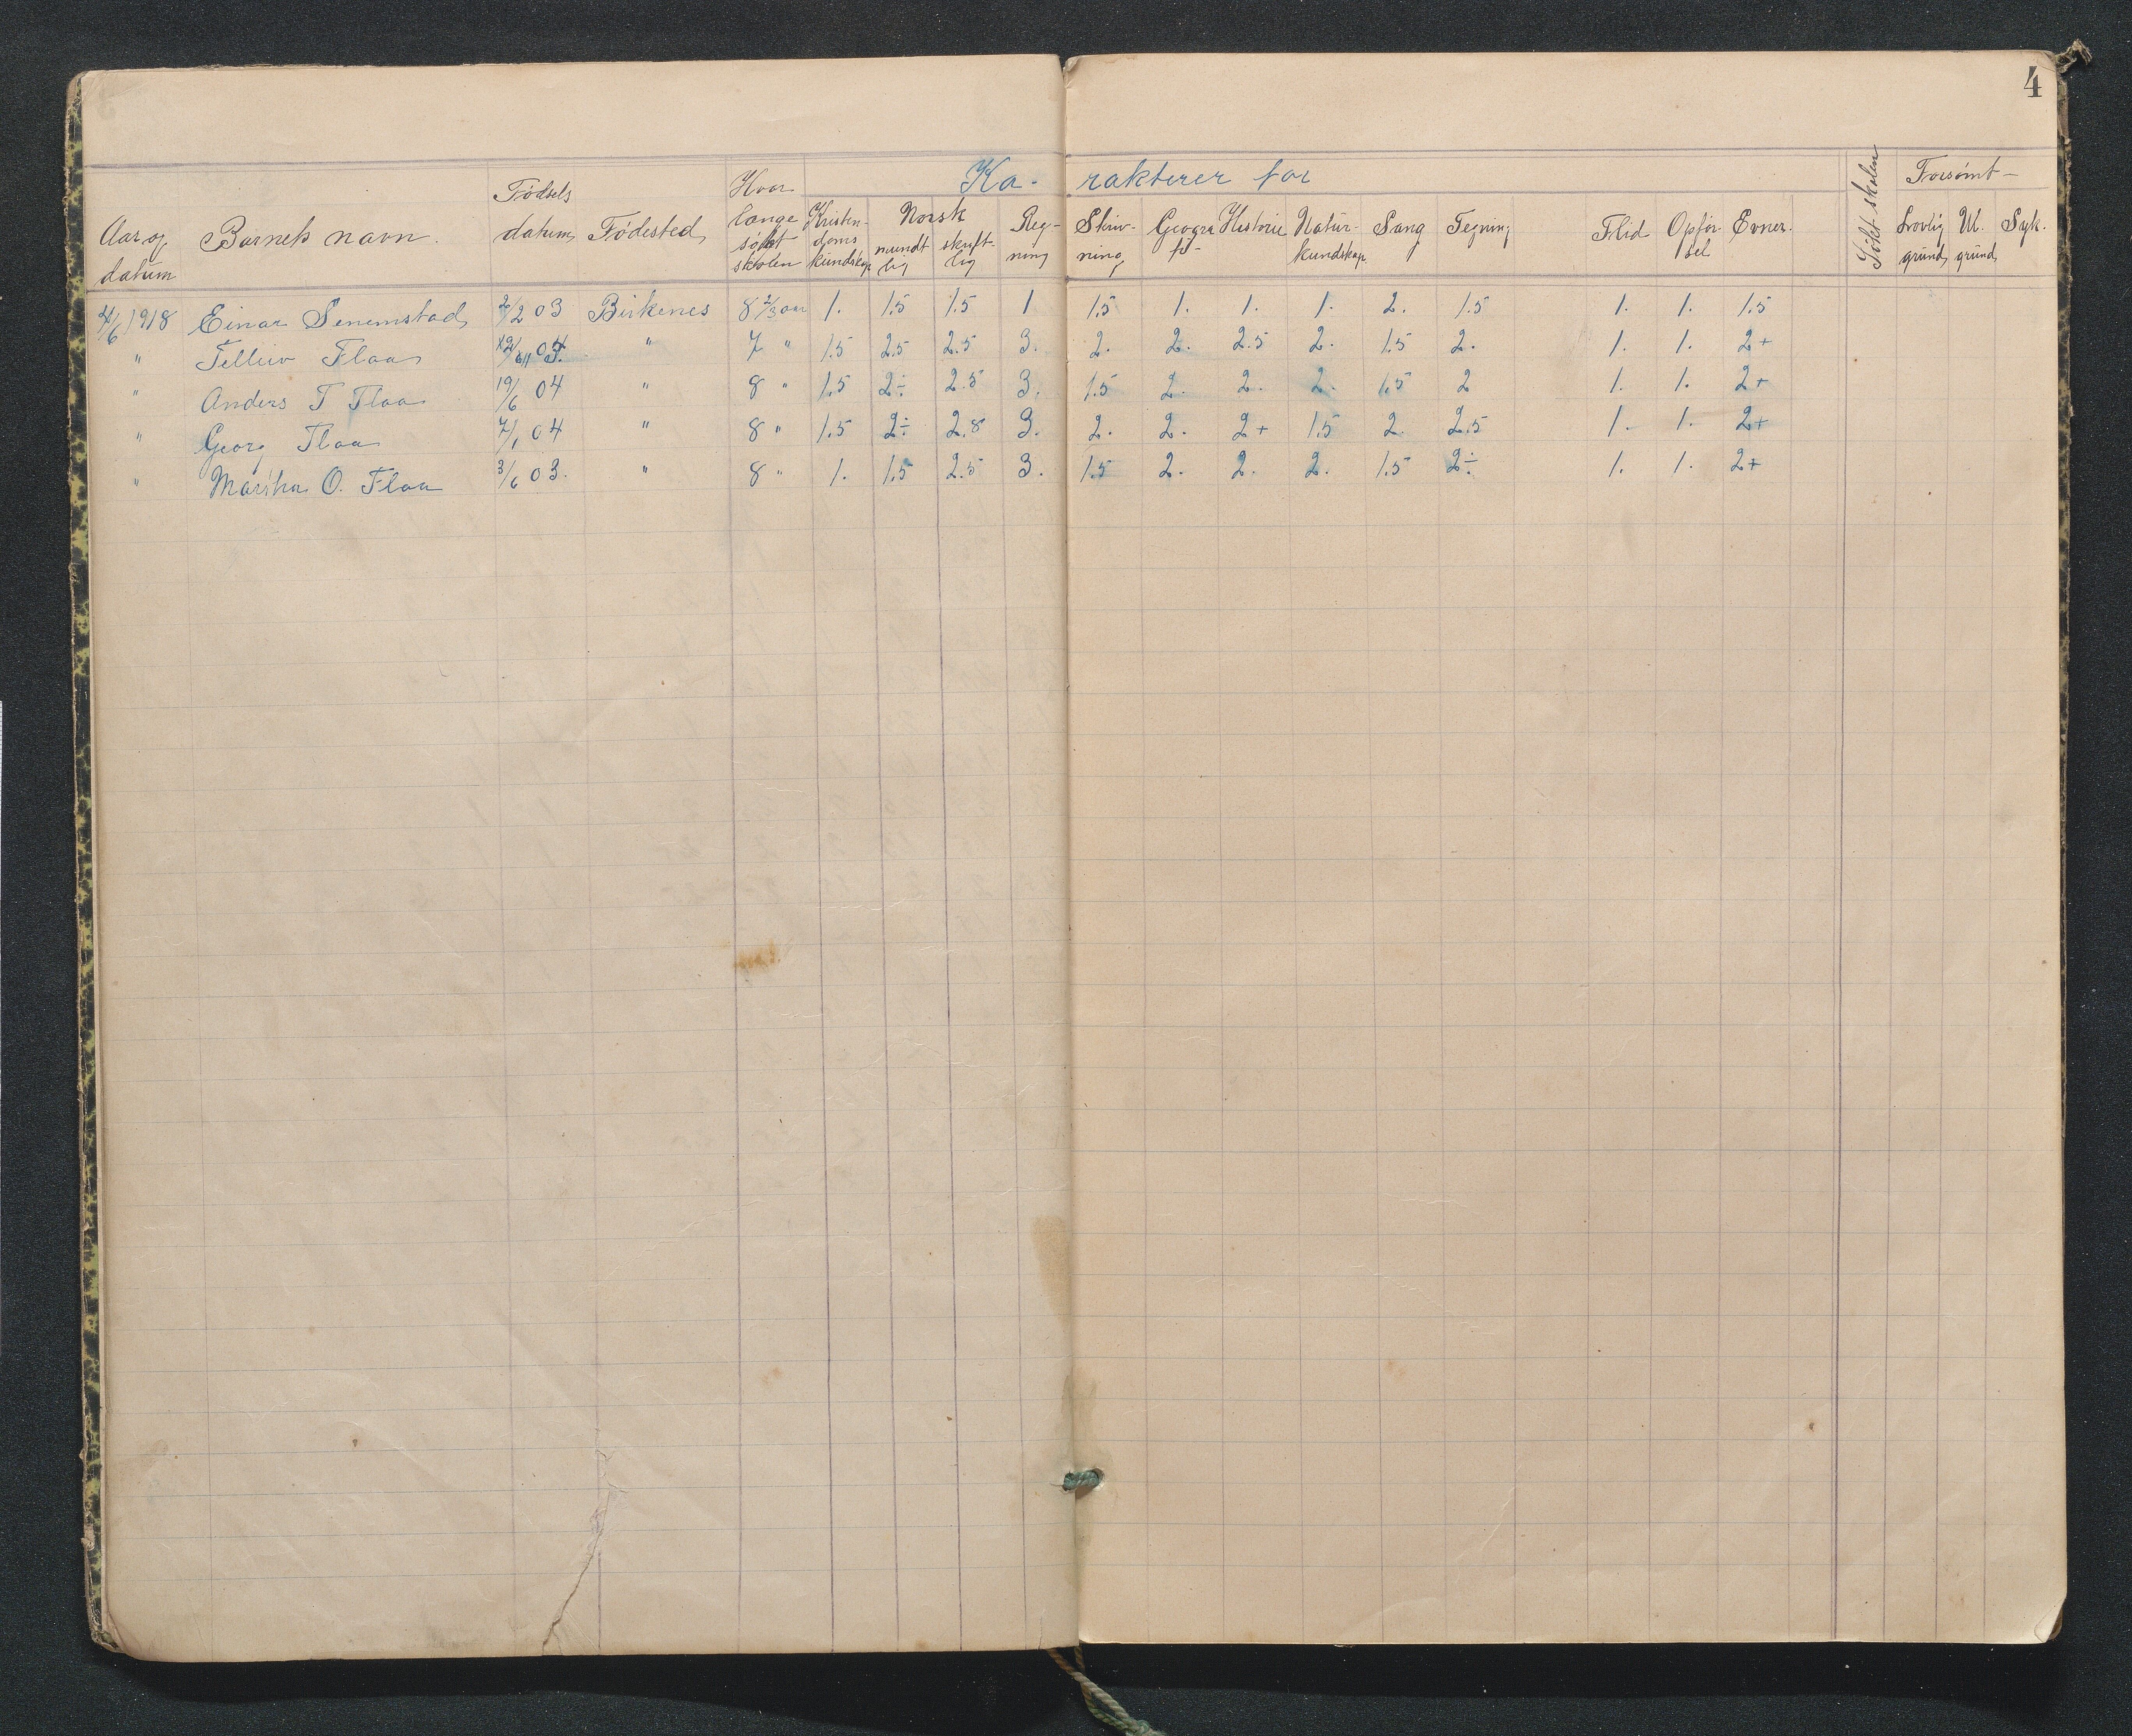 4
Ka- rakterer for
Aar og datum Barnets navn. Fødsels datum Fødested Hvor længe søkt skolen Kristen- doms kundskap Norsk mundt lig skrift- lig Reg- ning Skriv- ning Geogra fi- Historie Natur- kundskap. Sang Tegning Flid Opfør sel Evner. Søkt skolen Forsømt- Lovlig grund U. grund Syk.
4/6 1918 Einar Senemstad /2 03 Birkenes 8 2/3 aar 1. 1.5 1.5 1 1.5 1. 1. 1. 2. 1.5 1. 1. 1.5
" Telleiv Flaa " 7 " 1.5 2.5 2.5 3. 2. 2. 2.5 2. 1.5 2. 1. 1. 2+
" Anders T Flaa 19/6 04 " 8 " 1.5 2÷ 2.5 3. 1.5 2. 2. 2. 1.5 2 1. 1. 2+
" Georg Flaa 7/1 04 " 8 " 1.5 2÷ 2.8 3. 2. 2. 2+ 1.5 2. 2.5 1. 1. 2+
" Martha O. Flaa 3/6 03. " 8 " 1. 1.5 2.5 3. 1.5 2. 2. 2. 1.5 2÷ 1. 1. 2+